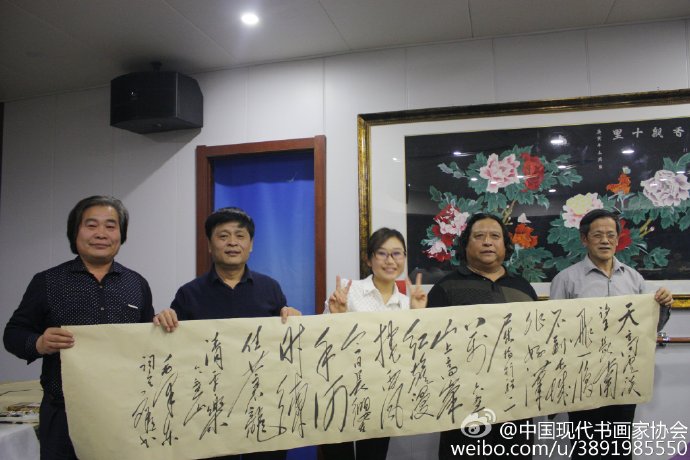 香飄十里
天高雲淡
望斷南
飛雁
不到長城
非好漢
屈指行程二
萬六盤
山上高峰
紅旗漫
捲西風
今日長纓在
手何
時縛
住蒼龍
清平樂
六盤山
毛澤東
@中国现代书画家协会
weibo.com/u/3891985550